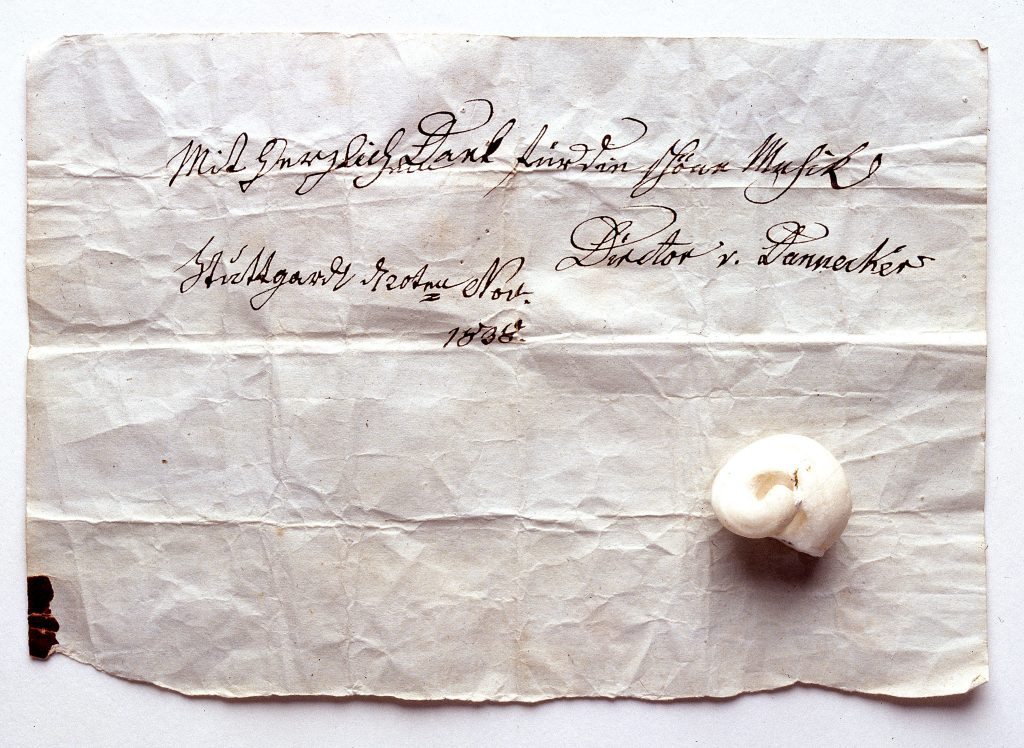 Mit Herzlichen Dank für die schöne Musik
Director v. Dannecker
Stuttgardt den 20ten Nov.
1838.